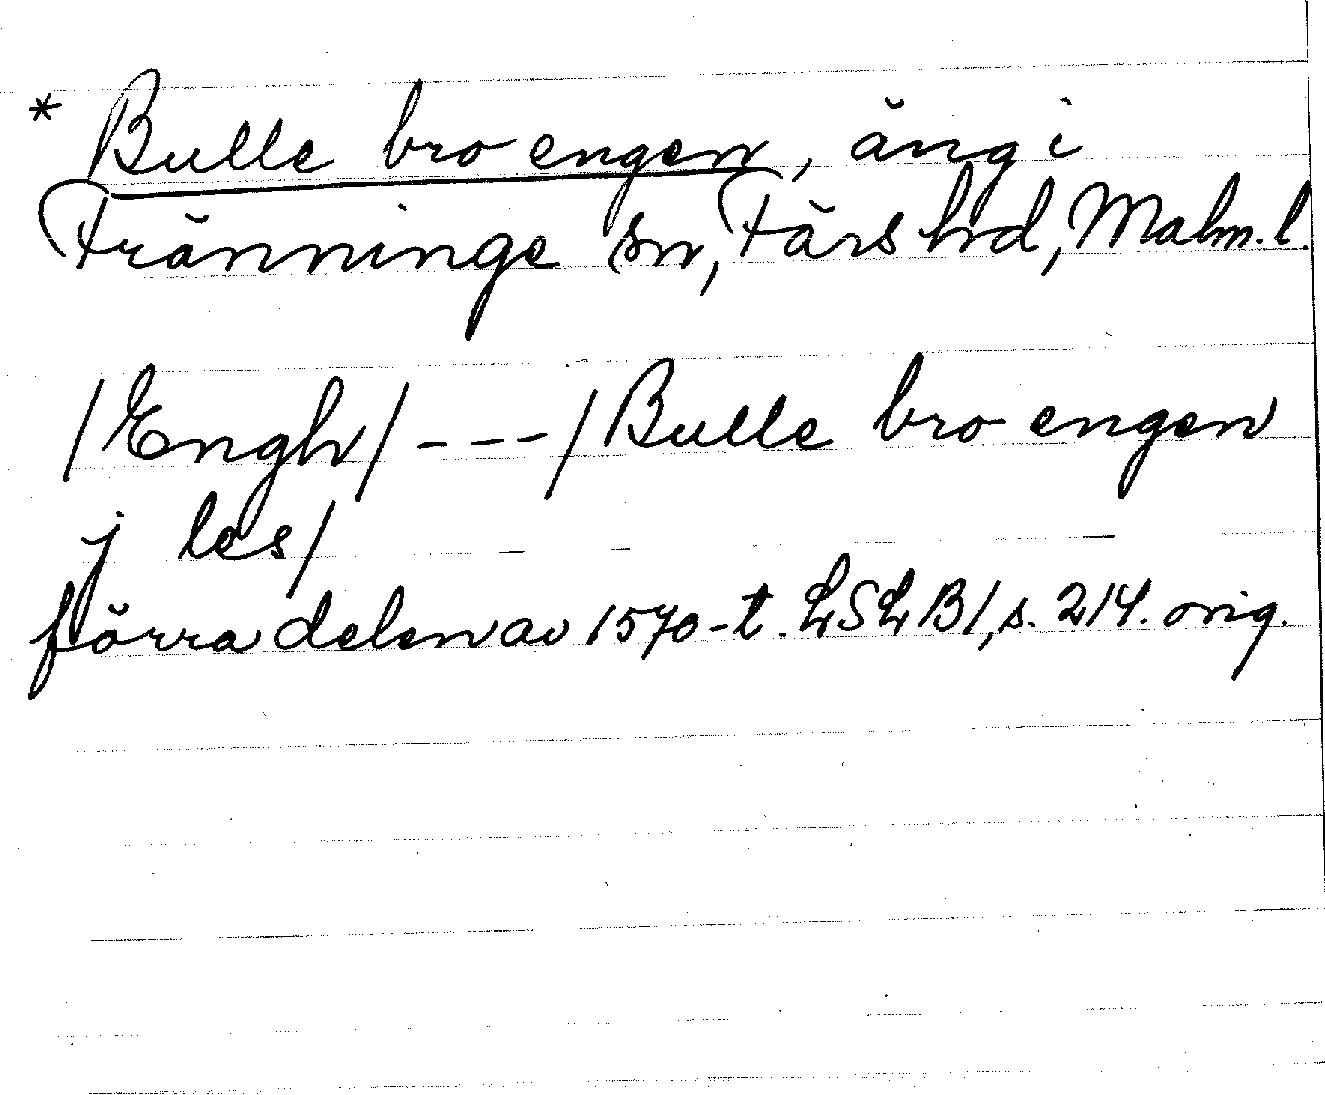 * Bulle bro engen, äng i
Fränninge sn, Färs hd, Malm. l.
/Engh/ --- / Bulle bro engen
j les/
förra delen av 1570-t. LSLB1, s. 214. orig.